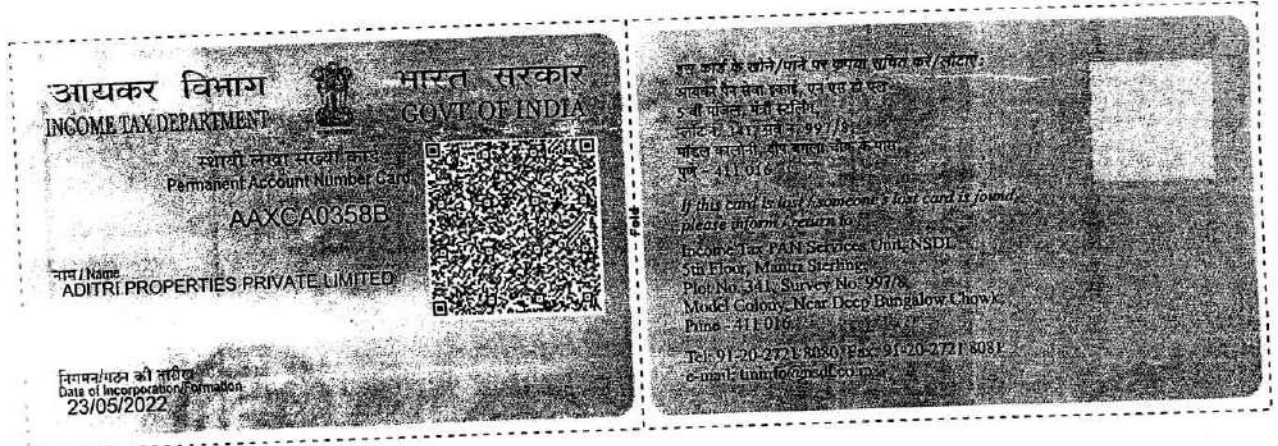 आयकर विभाग
INCOME TAX DEPARTMENT
भारत सरकार
GOVT. OF INDIA
स्थायी लेखा संख्या कार्ड
Permanent Account Number Card
AAXCA0358B
नाम / Name
ADITRI PROPERTIES PRIVATE LIMITED
निगमन/गठन की तारीख
Date of Incorporation/Formation
23/05/2022
- Fold -
इस कार्ड के खोने/पाने पर कृपया सूचित करें/लौटाएं:
आयकर पैन सेवा इकाई, एन एस डी एल
5 वी मंजिल, मंत्री स्टर्लिंग,
प्लॉट नं. 341, सर्वे नं. 997/8,
मॉडल कालोनी, दीप बंगला चौक के पास,
पुणे - 411 016
If this card is lost / someone's lost card is found,
please inform / return to :
Income Tax PAN Services Unit, NSDL
5th Floor, Mantri Sterling,
Plot No. 341, Survey No. 997/8,
Model Colony, Near Deep Bungalow Chowk,
Pune - 411 016.
Tel: 91-20-2721 8080, Fax: 91-20-2721 8081
e-mail: tininfo@nsdl.co.in